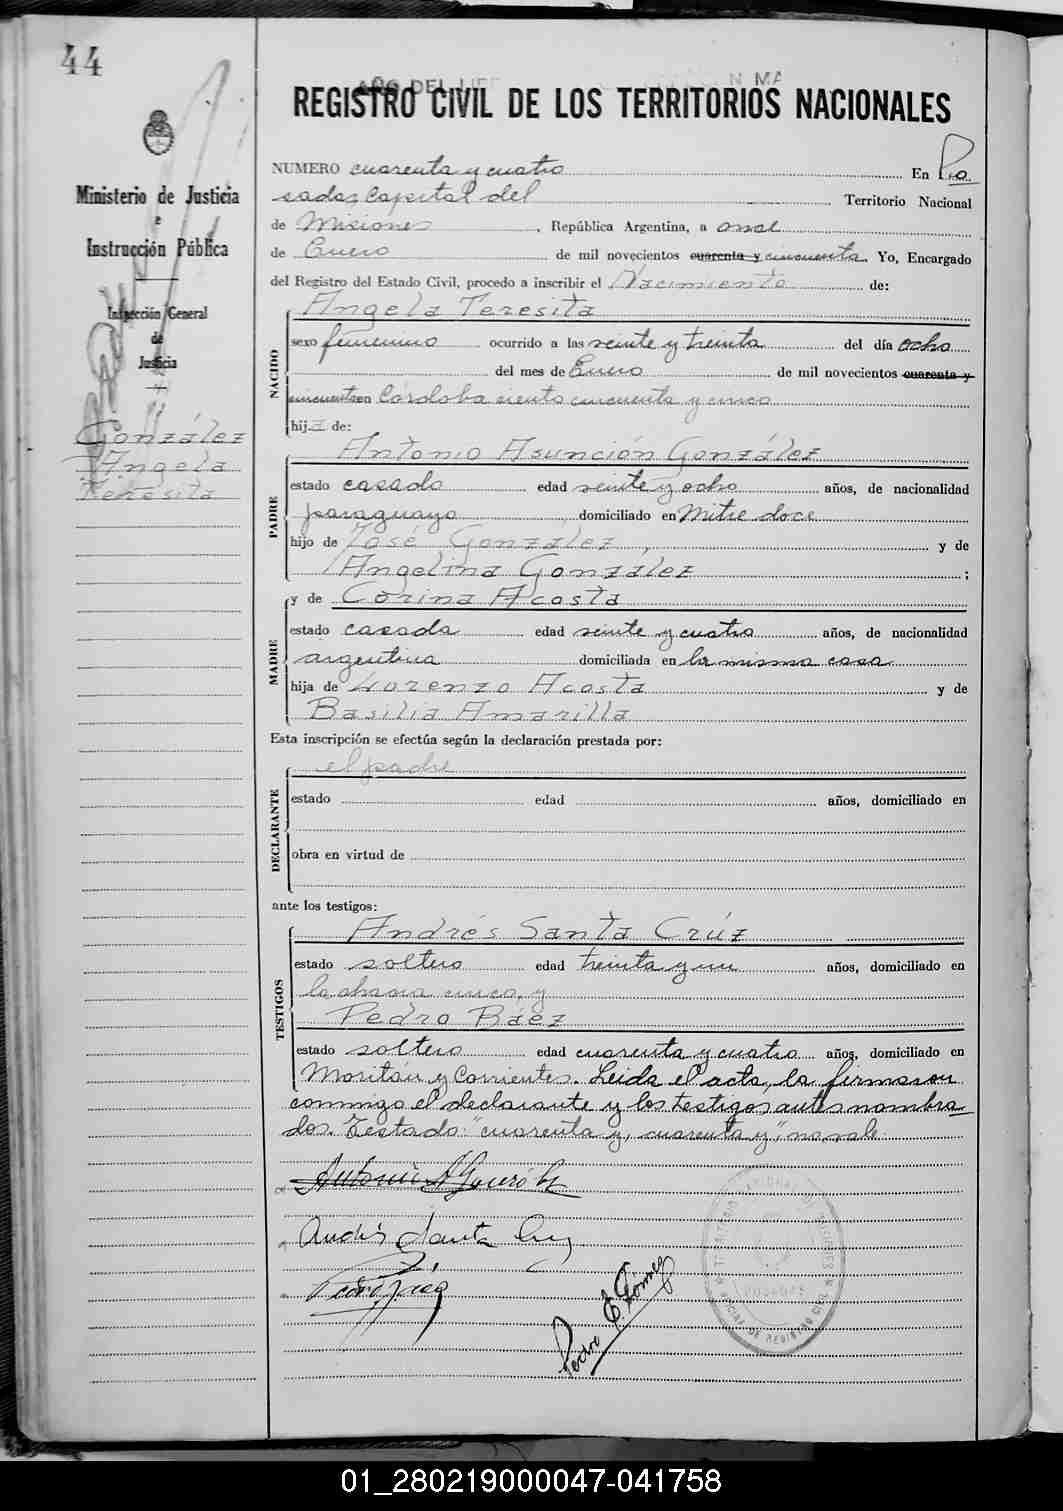 44
AÑO DEL LIBE
N MA
REGISTRO CIVIL DE LOS TERRITORIOS NACIONALES
Ministerio de Justicia
e
Instrucción Pública
Inspección General
de
Justicia
González
Angela
Teresita
NUMERO cuarenta y cuatro En Po
sadas Capital del Territorio Nacional
de Misiones, República Argentina, a once
de Enero de mil novecientos cuarenta y cincuenta. Yo, Encargado
del Registro del Estado Civil, procedo a inscribir el Nacimiento de:
NACIDO
Angela Teresita
sexo femenino ocurrido a las veinte y treinta del día ocho
del mes de Enero de mil novecientos cuarenta y
cincuenta en Córdoba ciento cincuenta y cinco
hija de:
PADRE
Antonio Asunción González
estado casado edad veinte y ocho años, de nacionalidad
paraguayo domiciliado en Mitre doce
hijo de José González, y de
Angelina González ;
MADRE
y de Corina Acosta
estado casada edad veinte y cuatro años, de nacionalidad
argentina domiciliada en la misma casa
hija de Lorenzo Acosta y de
Basilia Amarilla
Esta inscripción se efectúa según la declaración prestada por:
DECLARANTE
el padre
estado edad años, domiciliado en
obra en virtud de
ante los testigos:
TESTIGOS
Andrés Santa Crúz
estado soltero edad treinta y un años, domiciliado en
la chacra cinco, y
Pedro Báez
estado soltero edad cuarenta y cuatro años, domiciliado en
Moritán y Corrientes. Leida el acta, la firmaron
conmigo el declarante y los testigos antes nombra
dos. Testado: "cuarenta y, cuarenta y", no vale
Antonio A González
Andrés Santa Cruz
Pedro Báez
Pedro E. Gómez
TERRITORIO NACIONAL DE MISIONES
OFICINA DE REGISTRO CIVIL
POSADAS
01_280219000047-041758